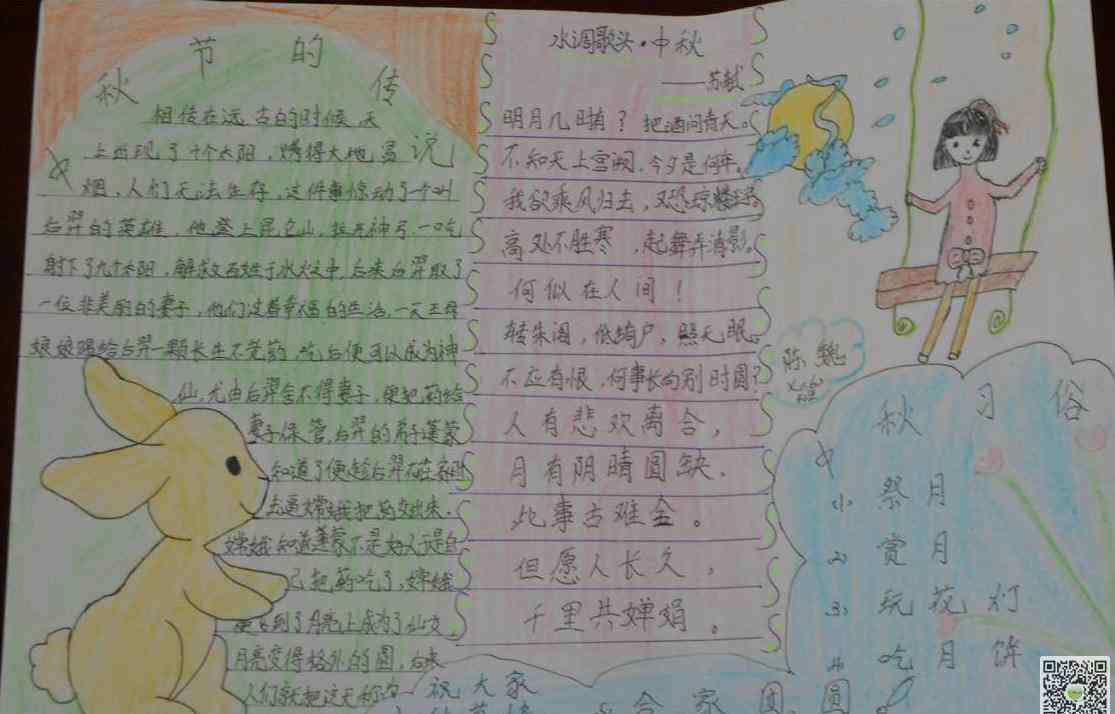 中秋节的传说
相传在远古的时候天
上出现了十个太阳，烤得大地冒
烟，人们无法生存，这件事惊动了一个叫
后羿的英雄，他登上昆仑山，拉开神弓，一口气
射下了九个太阳，解救百姓于水火之中，后来后羿取了
一位非美丽的妻子，他们过着幸福的生活，一天王母
娘娘赐给后羿一颗长生不老药，吃后便可以成为神
仙，尤由后羿舍不得妻子，便把药给
妻子保管，后羿的弟子蓬蒙
知道了便趁后羿不在家时
去逼嫦娥把药交出来，
嫦娥知道蓬蒙不是好人于是自
己把药吃了，嫦娥
便飞到了月亮上成为了仙女，
月亮变得格外的圆，后来
人们就把这天称为
水调歌头·中秋
——苏轼
明月几时有？把酒问青天。
不知天上宫阙，今夕是何年。
我欲乘风归去，又恐琼楼玉宇。
高处不胜寒，起舞弄清影。
何似在人间！
转朱阁，低绮户，照无眠。
不应有恨，何事长向别时圆？
人有悲欢离合，
月有阴晴圆缺，
此事古难全。
但愿人长久，
千里共婵娟。
陈魏
中秋习俗
1、祭月
2、赏月
3、玩花灯
4、吃月饼
祝大家
合家团圆